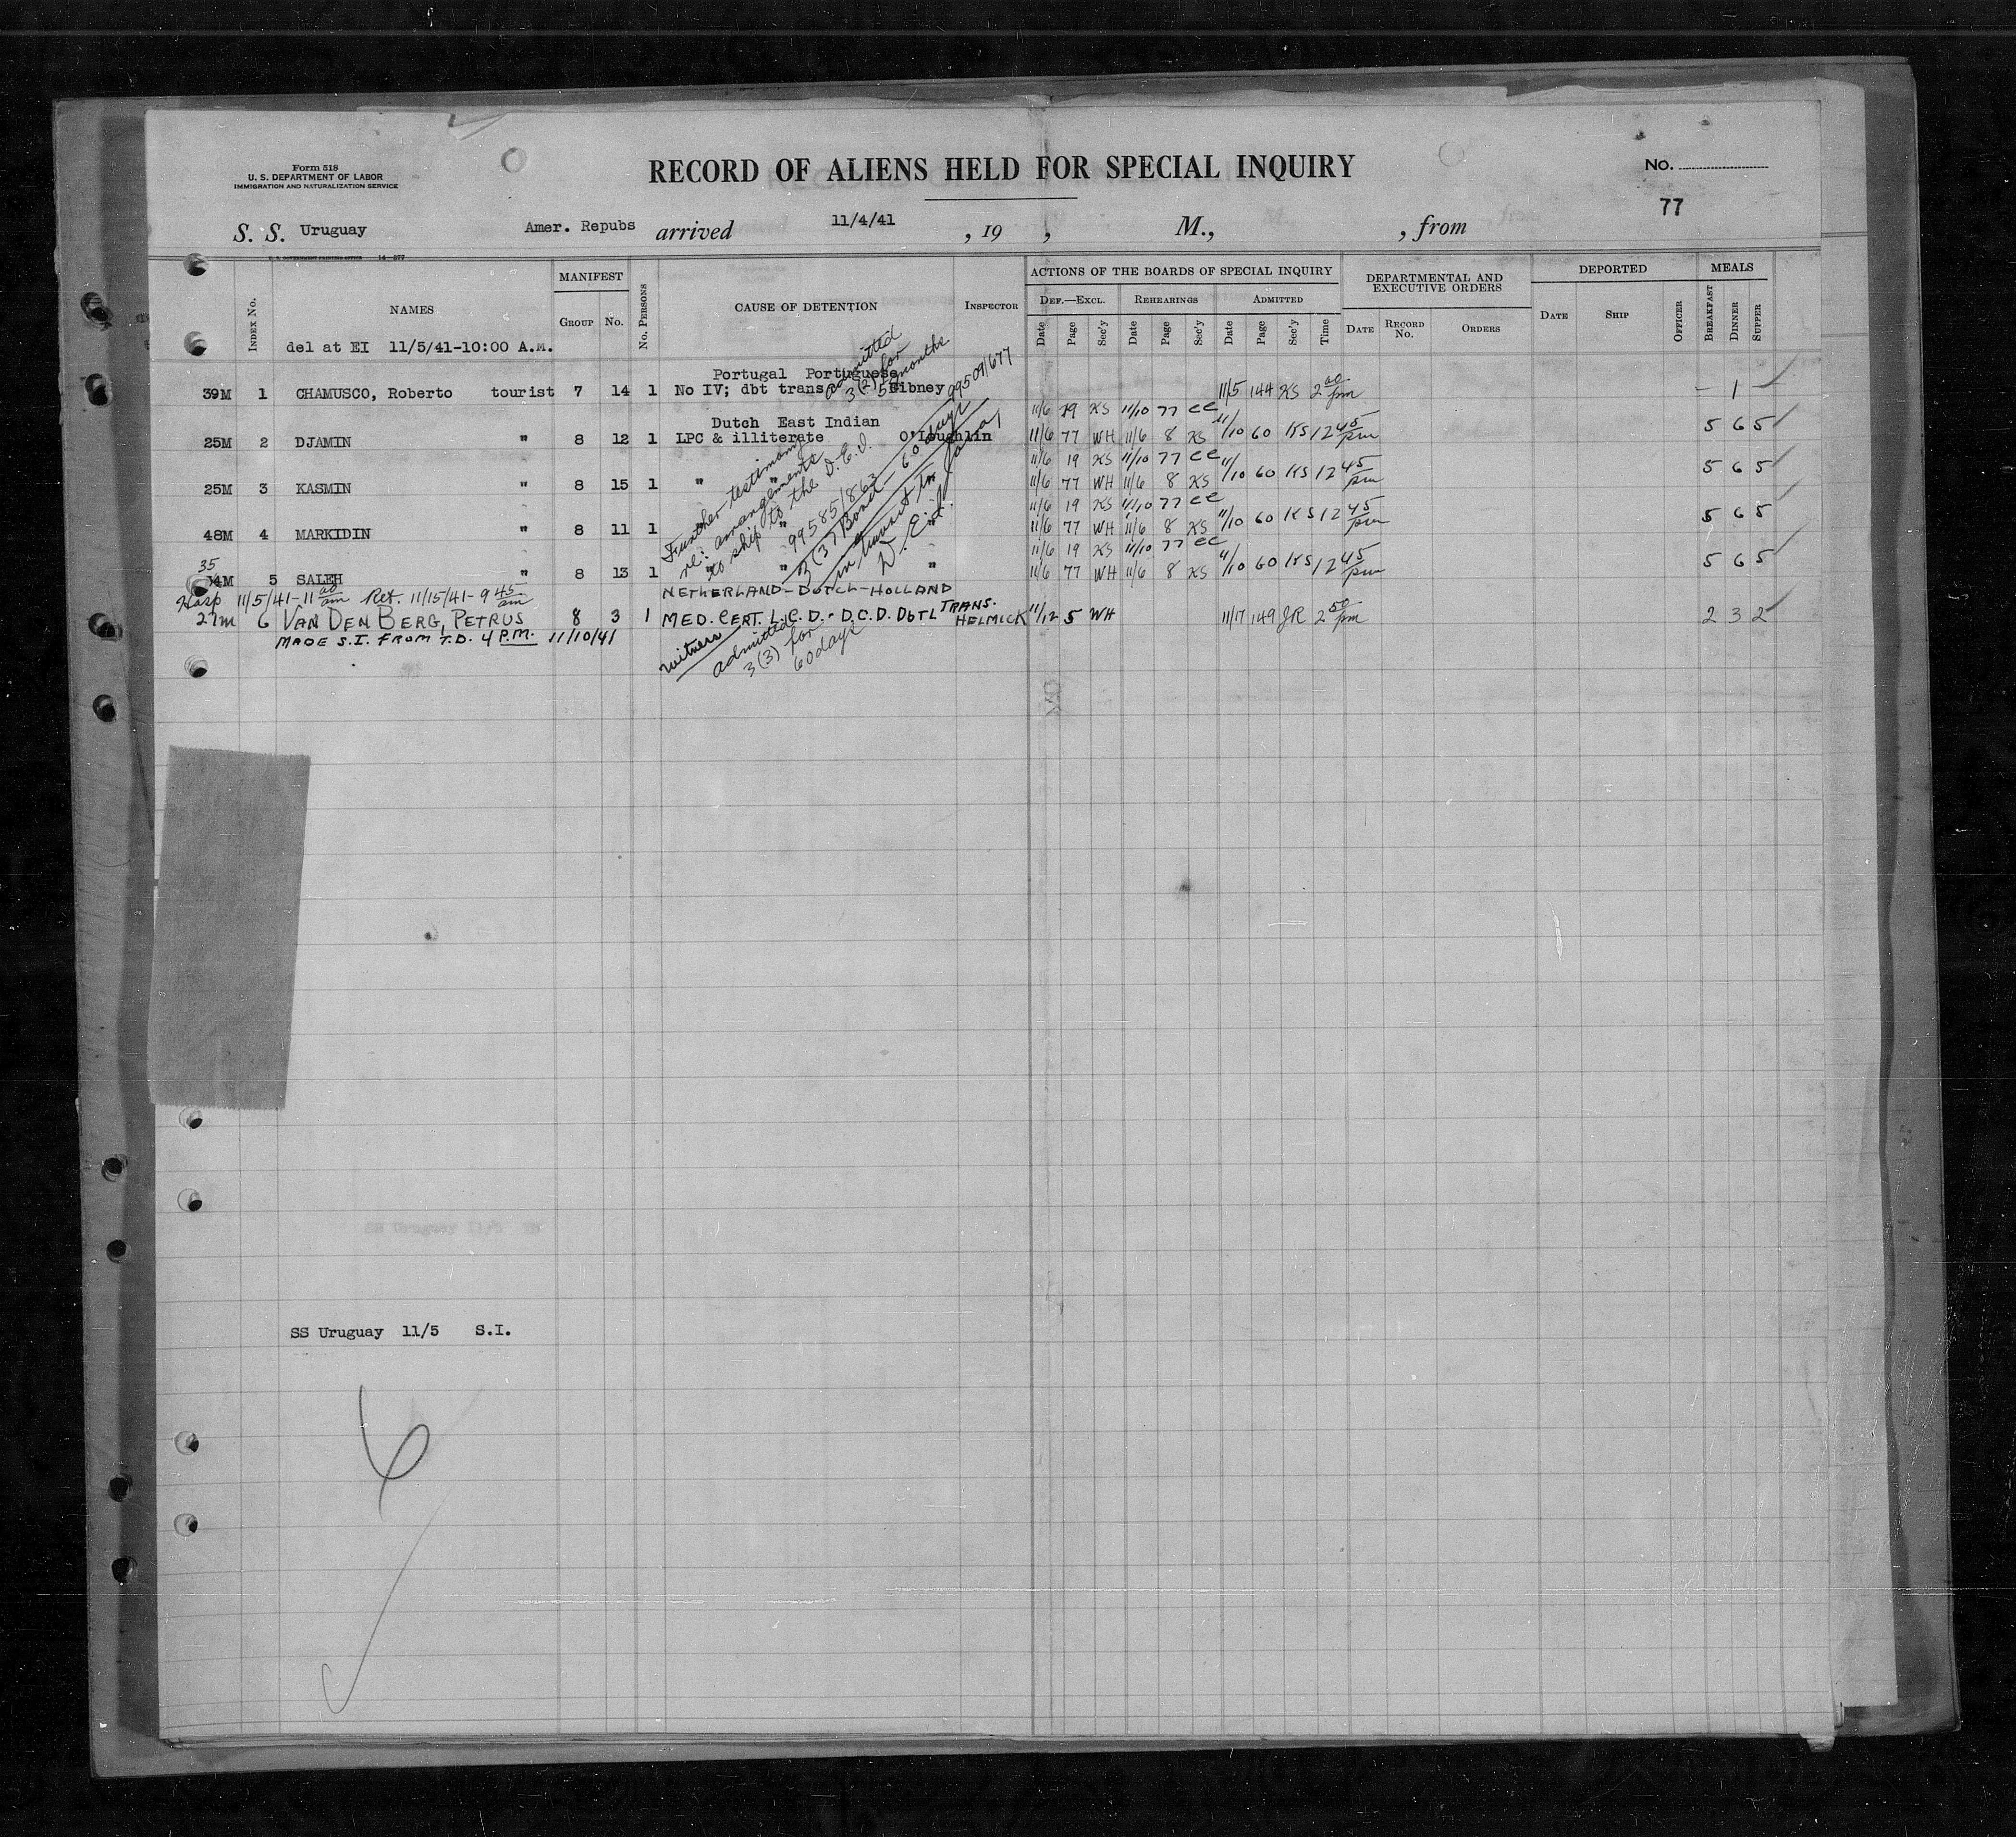 Form 518
U. S. DEPARTMENT OF LABOR
IMMIGRATION AND NATURALIZATION SERVICE
RECORD OF ALIENS HELD FOR SPECIAL INQUIRY
No.
77
S. S. Uruguay Amer. Repubs arrived 11/4/41 , 19 , M., , from
U. S. GOVERNMENT PRINTING OFFICE 14—277
INDEX No. NAMES MANIFEST GROUP No. No. PERSONS CAUSE OF DETENTION INSPECTOR
ACTIONS OF THE BOARDS OF SPECIAL INQUIRY DEF.—EXCL. REHEARINGS ADMITTED
Date Page Sec'y Date Page Sec'y Date Page Sec'y Time
DEPARTMENTAL AND EXECUTIVE ORDERS DATE RECORD No. ORDERS
DEPORTED DATE SHIP OFFICER
MEALS BREAKFAST DINNER SUPPER
del at EI 11/5/41-10:00 A.M.
Portugal Portuguese
39M 1 CHAMUSCO, Roberto tourist 7 14 1 No IV; dbt trans Gibney 11/5 144 KS 2 00 pm – 1 –
admitted
3(2) for
5 months
99509/677
Dutch East Indian
11/6 19 KS 11/10 77 CC
25M 2 DJAMIN " 8 12 1 LPC & illiterate O'Loughlin 11/6 77 WH 11/6 8 KS 11/10 60 KS 12 45 pm 5 6 5
11/6 19 KS 11/10 77 CC
25M 3 KASMIN " 8 15 1 " " " 11/6 77 WH 11/6 8 KS 11/10 60 KS 12 45 pm 5 6 5
11/6 19 KS 11/10 77 CC
48M 4 MARKIDIN " 8 11 1 " " 11/6 77 WH 11/6 8 KS 11/10 60 KS 12 45 pm 5 6 5
11/6 19 KS 11/10 77 CC
35
34M 5 SALEH " 8 13 1 " " " 11/6 77 WH 11/6 8 KS 11/10 60 KS 12 45 pm 5 6 5
Further testimony
re: arrangements
to ship to the D.E.I.
99585/863
3(3) Bond – 60 days
in transit to Java,
D.E.I.
Hosp 11/5/41-11 00 am Ret. 11/15/41-9 45 am
NETHERLAND-DUTCH-HOLLAND
27m 6 VAN DEN BERG, PETRUS 8 3 1 MED. CERT. L.C.D.-D.C.D. DBTL TRANS. HELMICK 11/12 5 WH 11/17 149 JR 2 50 pm 2 3 2
MADE S.I. FROM T.D. 4 P.M. 11/10/41
witness
admitted
3(3) for
60 days
SS Uruguay 11/5 S.I.
6